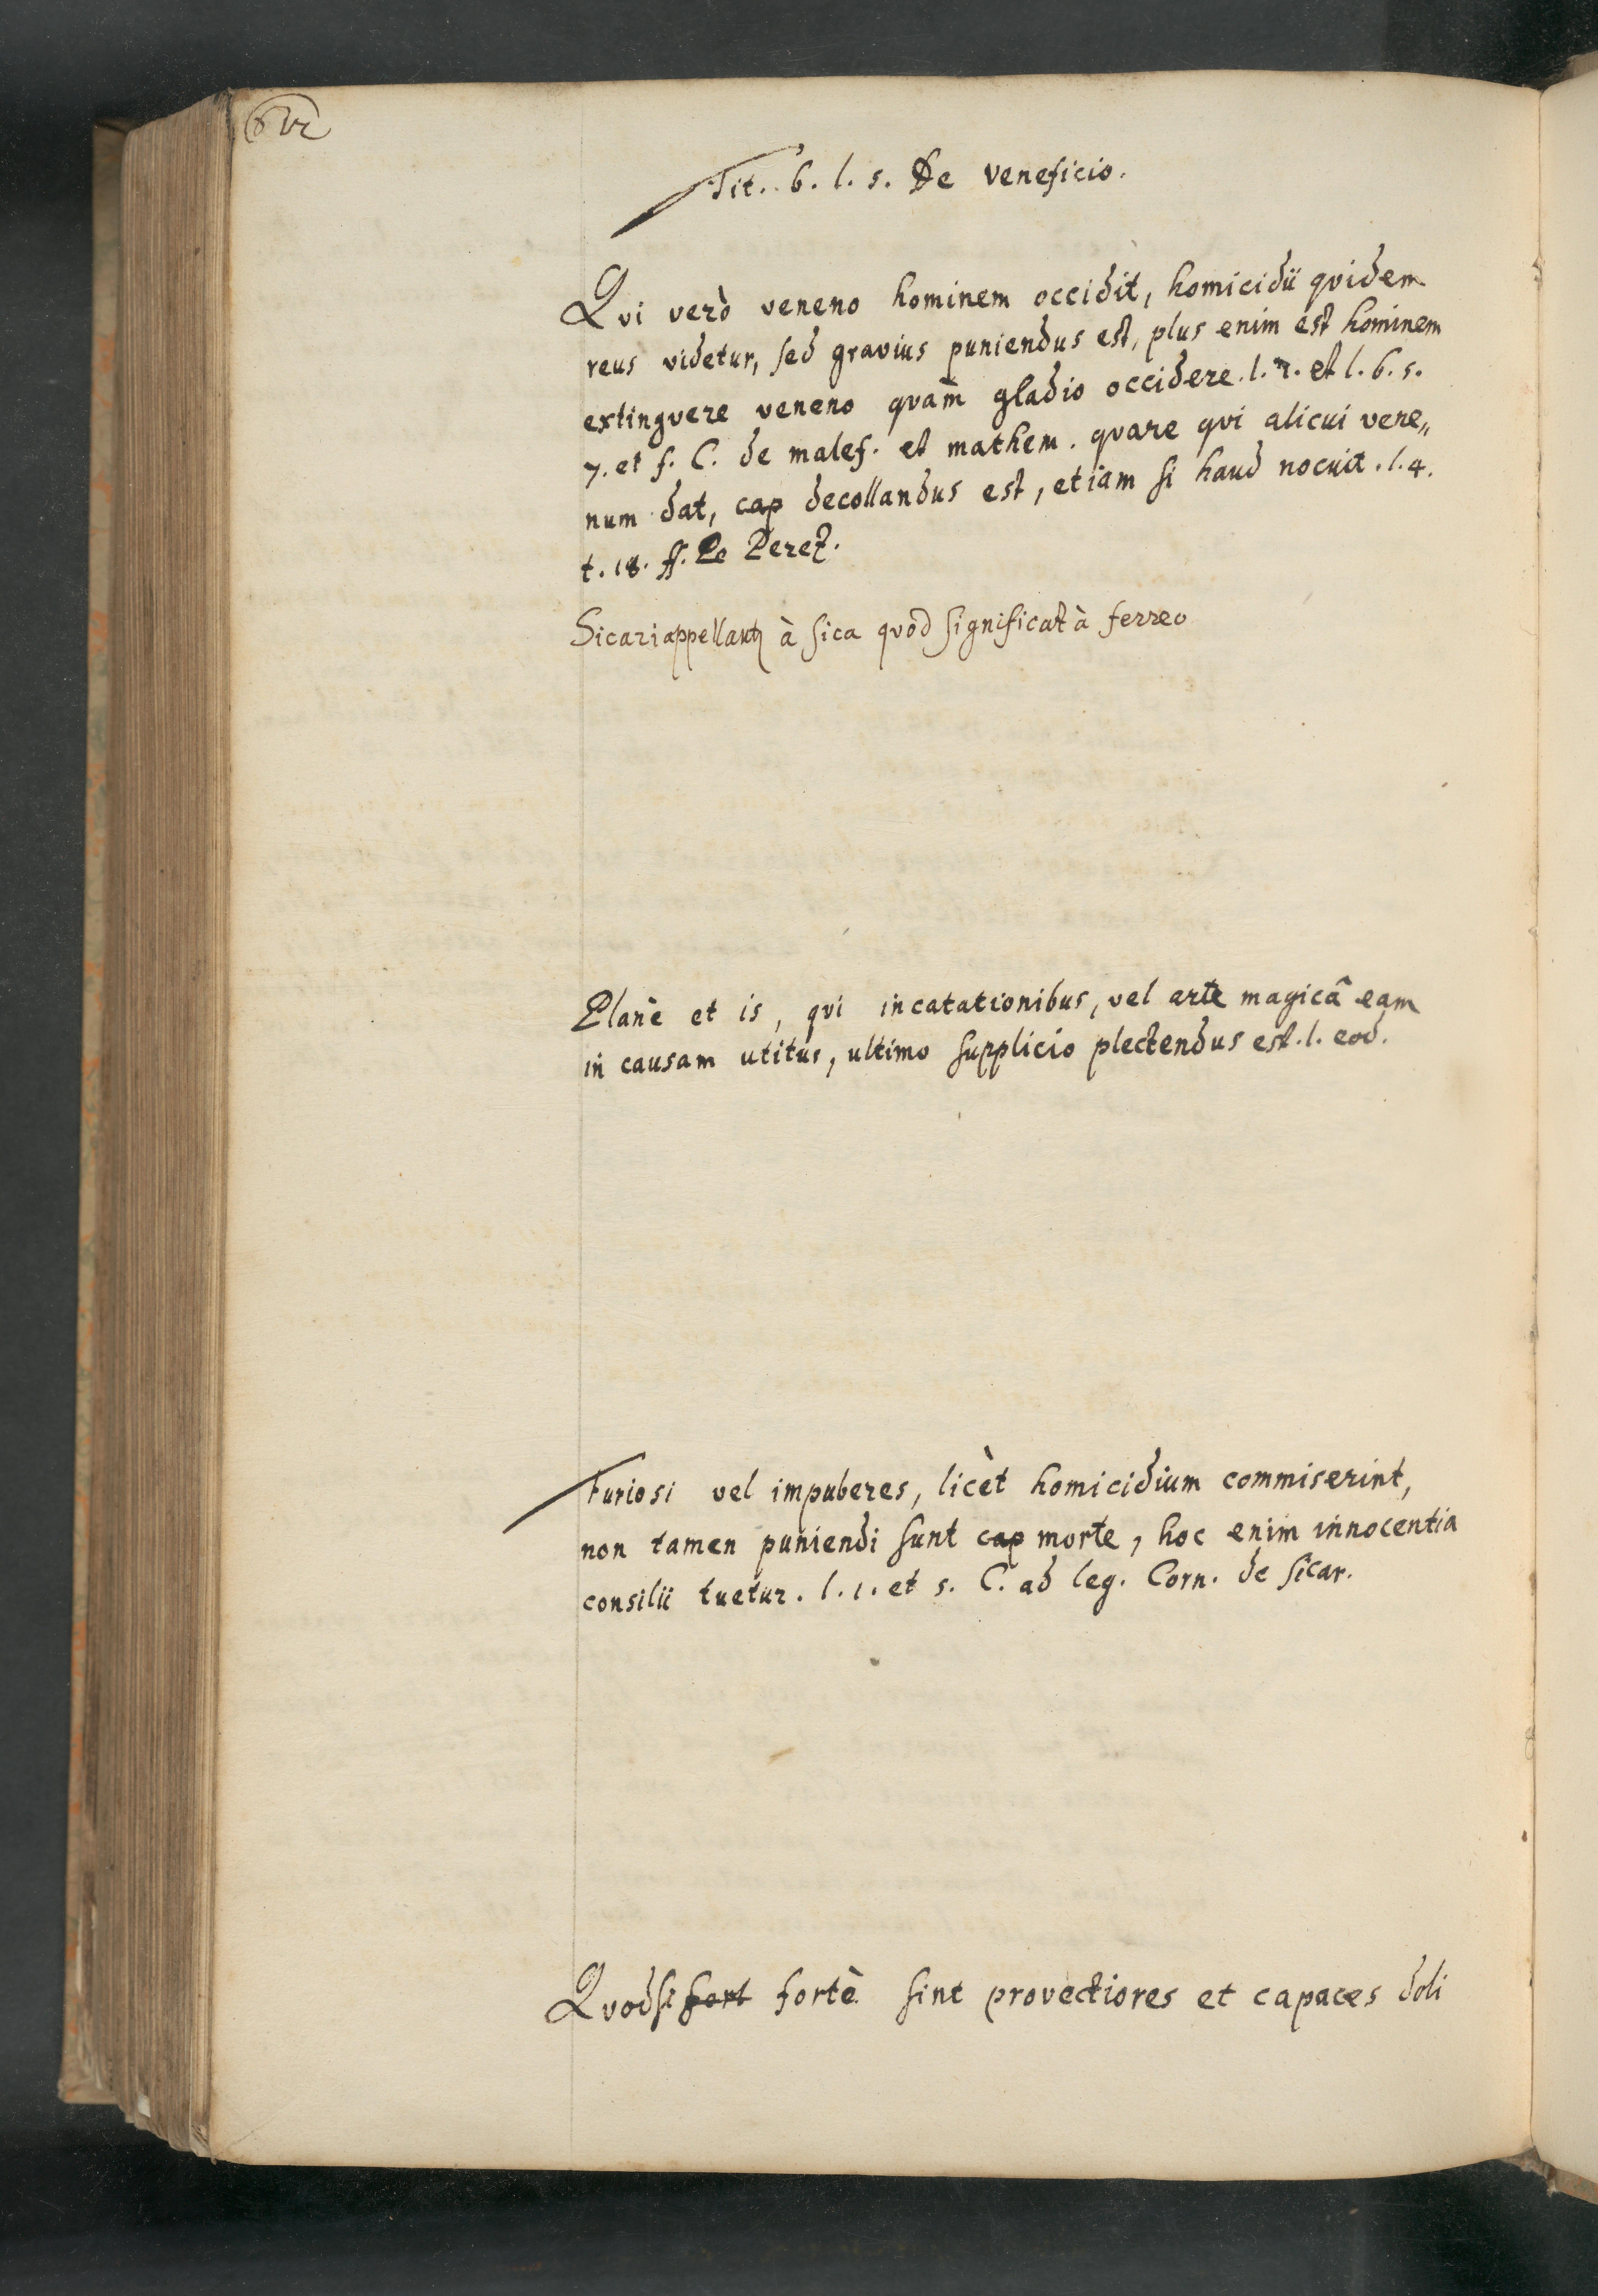 Tit. 6. l. s. De veneficio.
Qvi verò veneno hominem occidit, homicidii qvidem
reus videtur, sed gravius puniendus est, plus enim est hominem
extingvere veneno qvam̄ gladio occidere. l. 1. et l. 6. s.
7. et f. C. de malef. et mathem. qvare qvi alicui vene„
num dat, cap decollandus est, etiam si haud nocuit. l. 4.
t. 18. ff. Perez.
Sicari appellantʒ à sica qvod significat à ferreo
Planè et is, qvi incatationibus, vel arte magicâ eam
in causam utitur, ultimo supplicio plectendus est. l. eod.
Furiosi vel impuberes, licèt homicidium commiserint,
non tamen puniendi sunt cap morte, hoc enim innocentia
consilii tuetur. l. 1. et 5. C. ad leg. Corn. de sicar.
Qvodsi fort fortè sint provectiores et capaces doli